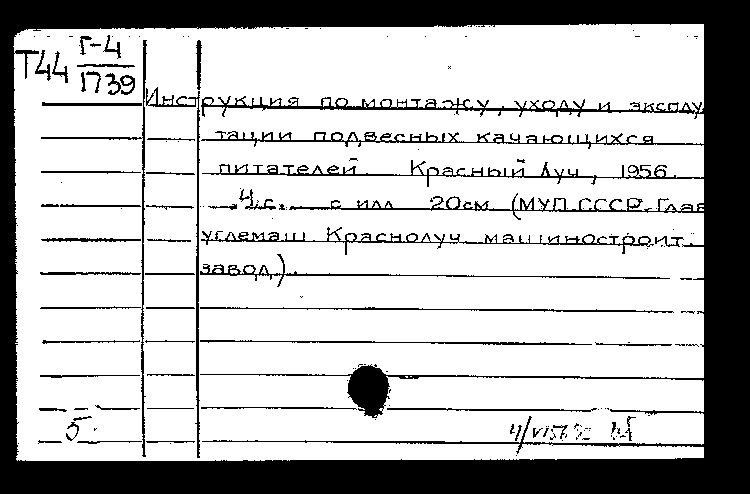 Т44 Г-4
1739
Инструкция по монтажу, уходу и эксплу
тации подвесных качающихся
питателей. Красный Луч, 1956.
4 с. с илл 20см (МУП СССР. Глав
углемаш Краснолуч. машиностроит.
завод).
5.